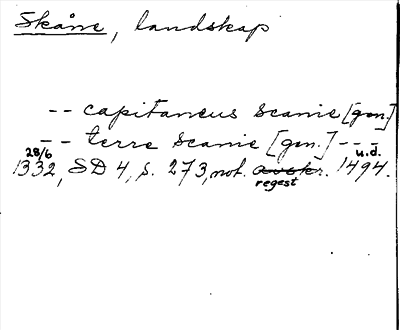 Skåne, landskap
-- capitaneus Scanie [gen.]
-- terre Scanie [gen.] ---
28/6 u.d.
1332, SD 4, s. 273, not. avskr. 1494.
regest